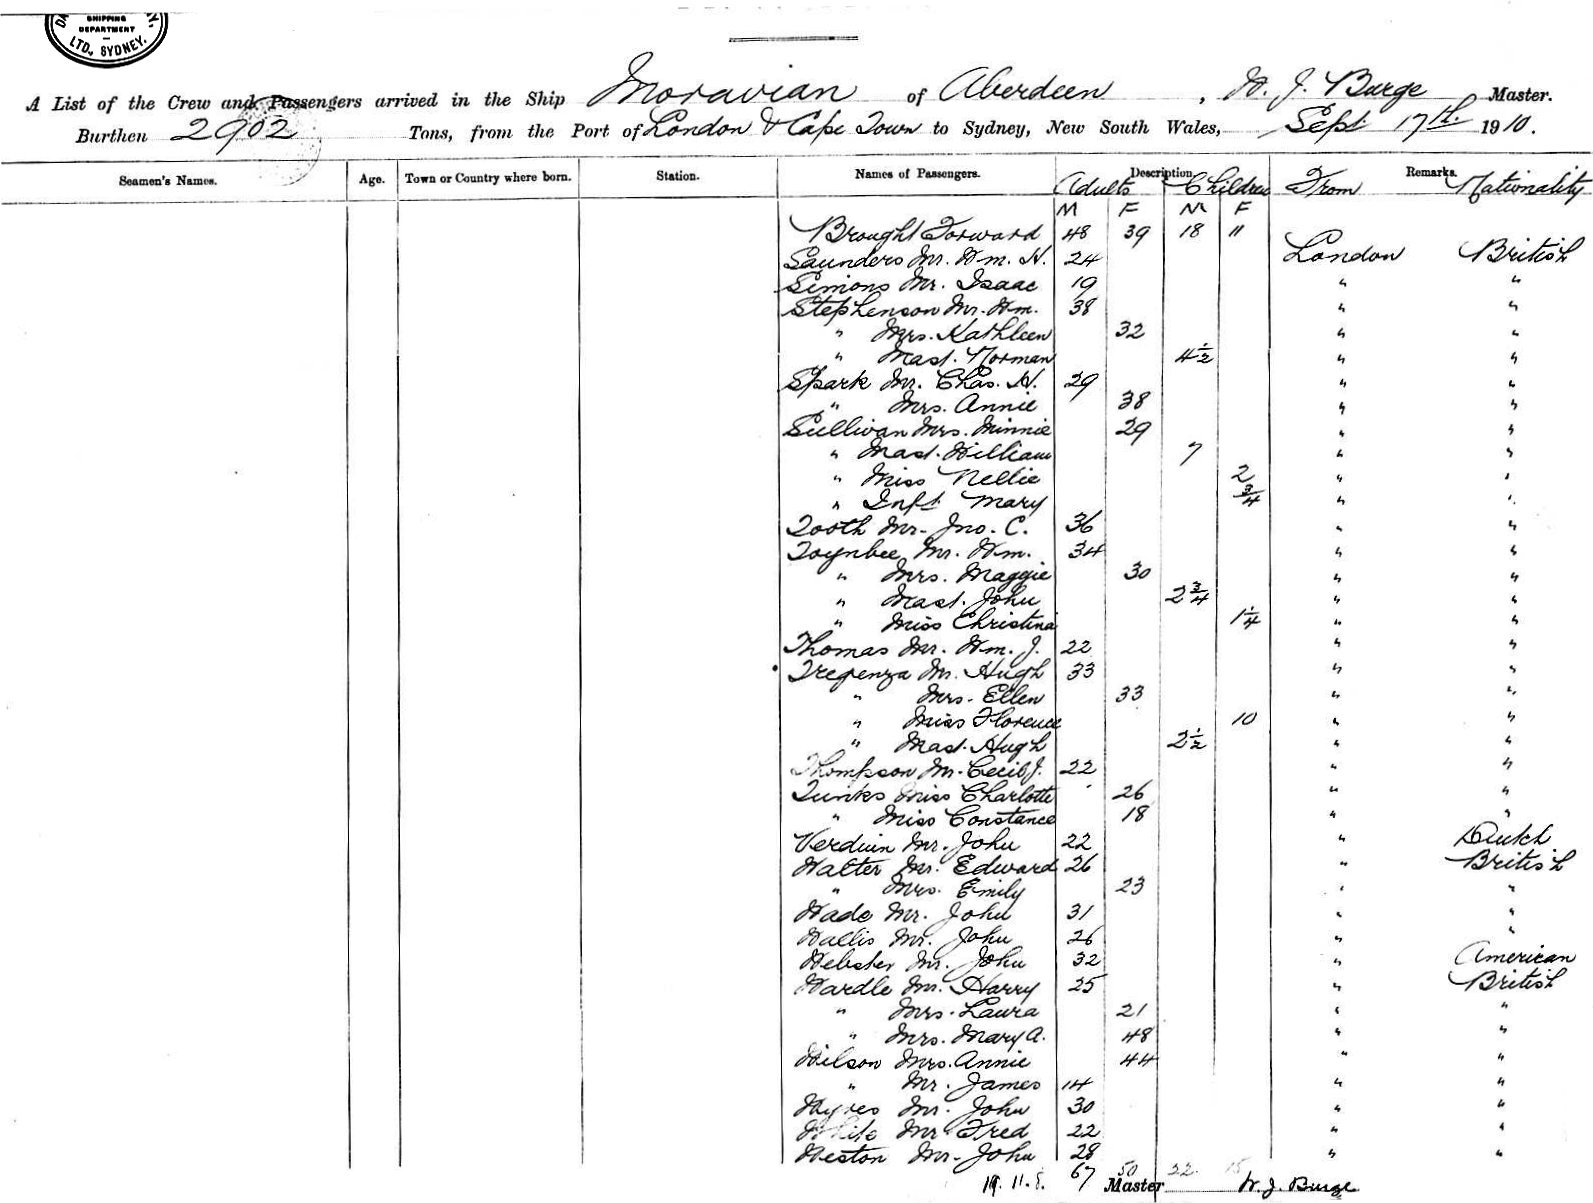 SHIPPING
DEPARTMENT
LTD., SYDNEY.
A List of the Crew and Passengers arrived in the Ship Moravian of Aberdeen, W. J. Burge Master.
Burthen 2902 Tons, from the Port of London & Cape Town to Sydney, New South Wales, Sept 17th. 1910.
Seamen's Names. Age. Town or Country where born. Station. Names of Passengers. Description Remarks.
Adults Children From Nationality
M F M F
Brought Forward 48 39 18 11
Saunders Mr. Wm. H. 24 London British
Simons Mr. Isaac 19 " "
Stephenson Mr. Wm. 38 " "
" Mrs. Kathleen 32 " "
" Mast. Norman 4½ " "
Spark Mr. Chas. H. 29 " "
" Mrs. Annie 38 " "
Sullivan Mrs. Minnie 29 " "
" Mast. William 7 " "
" Miss Nellie 2 " "
" Inft. Mary ¾ " "
Tooth Mr. Jno. C. 36 " "
Toynbee Mr. Wm. 34 " "
" Mrs. Maggie 30 " "
" Mast. John 2¾ " "
" Miss Christina 1¼ " "
Thomas Mr. Wm. J. 22 " "
Tregenza Mr. Hugh 33 " "
" Mrs. Ellen 33 " "
" Miss Florence 10 " "
" Mast. Hugh 2½ " "
Thompson Mr. Cecil J. 22 " "
Tunks Miss Charlotte 26 " "
" Miss Constance 18 " "
Verduin Mr. John 22 " Dutch
Walter Mr. Edward 26 " British
" Mrs. Emily 23 " "
Wade Mr. John 31 " "
Wallis Mr. John 26 " "
Webster Mr. John 32 " American
Wardle Mr. Harry 25 " British
" Mrs. Laura 21 " "
" Mrs. Mary A. 48 " "
Wilson Mrs. Annie 44 " "
" Mr. James 14 " "
Wyres Mr. John 30 " "
White Mr Fred 22 " "
Weston Mr. John 28 " "
67 50 22 15
Master W. J. Burge